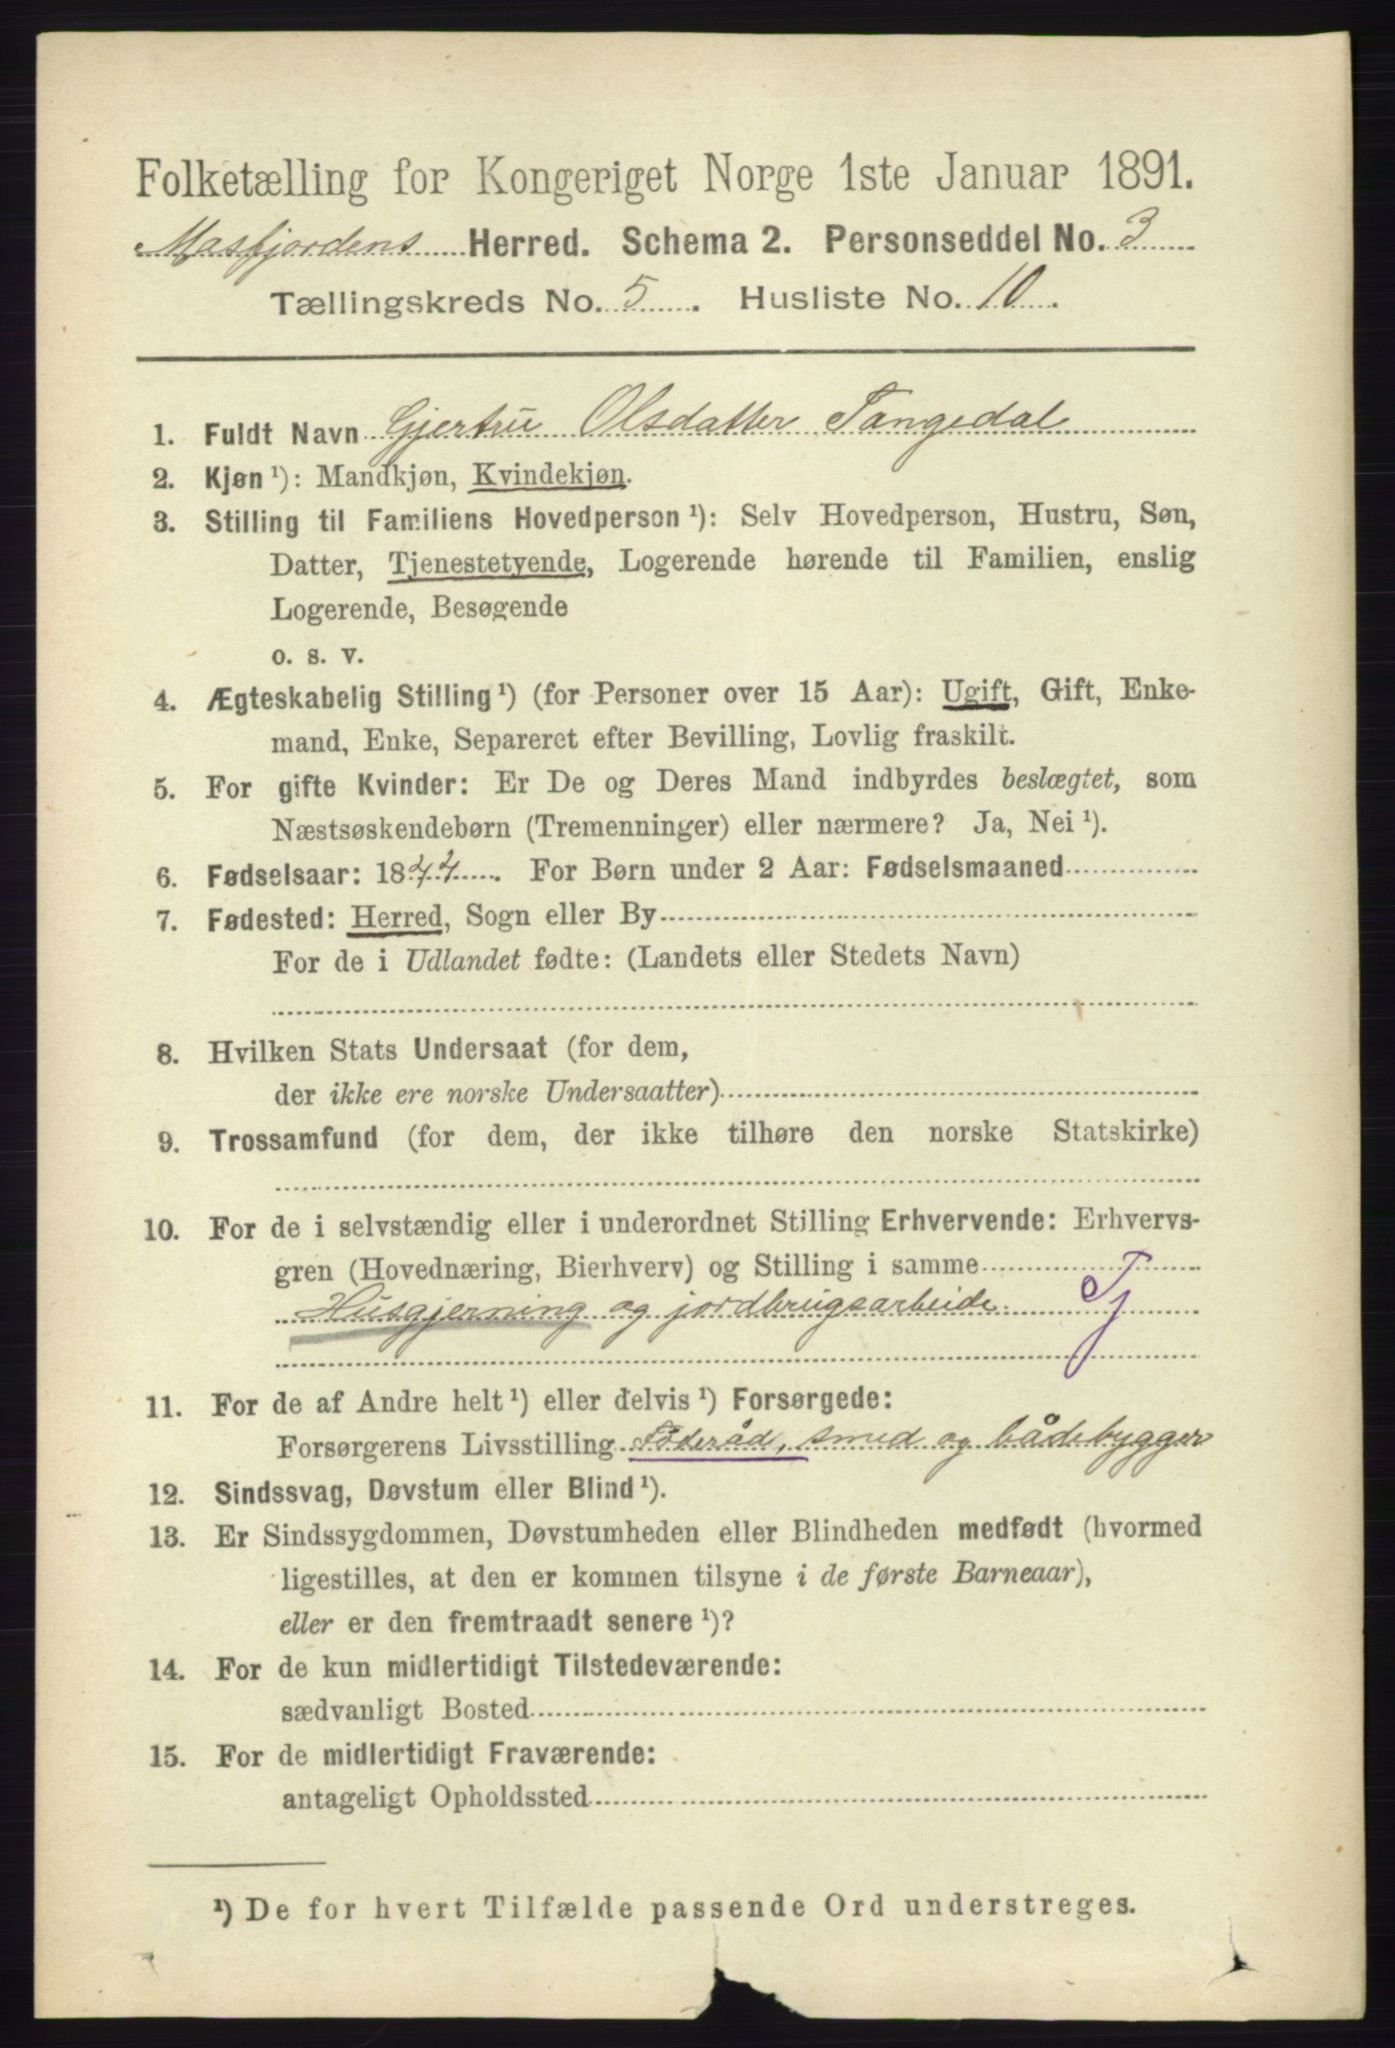 Folketælling for Kongeriget Norge 1ste Januar 1891.
Masfjordens Herred. Schema 2. Personseddel No. 3
Tællingskreds No. 5. Husliste No. 10.
1. Fuldt Navn Gjertru Olsdatter Tangedal
2. Kjøn ¹): Mandkjøn, Kvindekjøn.
3. Stilling til Familiens Hovedperson ¹): Selv Hovedperson, Hustru, Søn,
Datter, Tjenestetyende, Logerende hørende til Familien, enslig
Logerende, Besøgende
o. s. v.
4. Ægteskabelig Stilling ¹) (for Personer over 15 Aar): Ugift, Gift, Enke-
mand, Enke, Separeret efter Bevilling, Lovlig fraskilt.
5. For gifte Kvinder: Er De og Deres Mand indbyrdes beslægtet, som
Næstsøskendebørn (Tremenninger) eller nærmere? Ja, Nei ¹).
6. Fødselsaar: 1844. For Børn under 2 Aar: Fødselsmaaned
7. Fødested: Herred, Sogn eller By
For de i Udlandet fødte: (Landets eller Stedets Navn)
8. Hvilken Stats Undersaat (for dem,
der ikke ere norske Undersaatter)
9. Trossamfund (for dem, der ikke tilhøre den norske Statskirke)
10. For de i selvstændig eller i underordnet Stilling Erhvervende: Erhvervs-
gren (Hovednæring, Bierhverv) og Stilling i samme
Husgjerning og jordbrugsarbeide. Tj
11. For de af Andre helt ¹) eller delvis ¹) Forsørgede:
Forsørgerens Livsstilling Föderåd, smed og bådebygger
12. Sindssvag, Døvstum eller Blind ¹).
13. Er Sindssygdommen, Døvstumheden eller Blindheden medfødt (hvormed
ligestilles, at den er kommen tilsyne i de første Barneaar),
eller er den fremtraadt senere ¹)?
14. For de kun midlertidigt Tilstedeværende:
sædvanligt Bosted
15. For de midlertidigt Fraværende:
antageligt Opholdssted
¹) De for hvert Tilfælde passende Ord understreges.